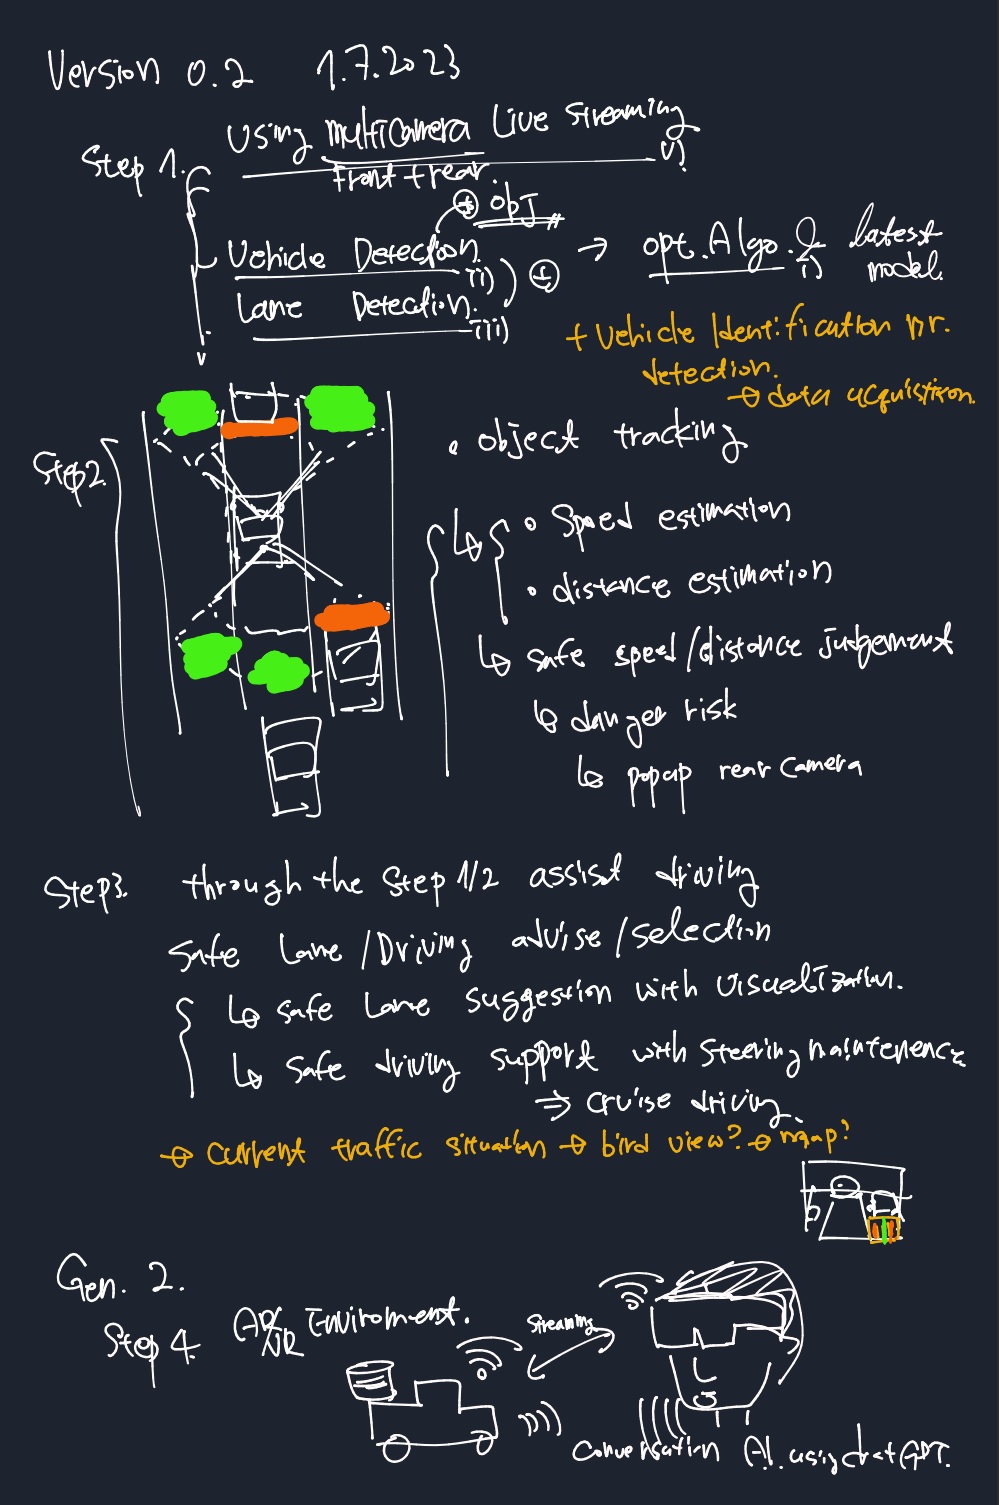 Version 0.2 1.7.2023
Step 1. Using multicamera Live streaming i)
front + rear.
+ obj
Vehicle Detection. ii)
Lane Detection. iii)
+ → opt. Algo. & latest model.
i)
+ Vehicle Identification nr. detection.
→ data acquistion.
Step2.
• object tracking
↳ • Speed estimation
• distance estimation
↳ safe speed/distance judgement
↳ danger risk
↳ popup rear camera
Step3. through the Step 1/2 assist driving
Safe Lane/Driving advise/selection
↳ safe Lane suggestion with visualization.
↳ Safe driving support with steering maintenence
⇒ cruise driving.
→ current traffic situation → bird view? → map?
Gen. 2.
Step 4 AR/VR Enviroment.
Streaming
Conversation AI. using chatGPT.